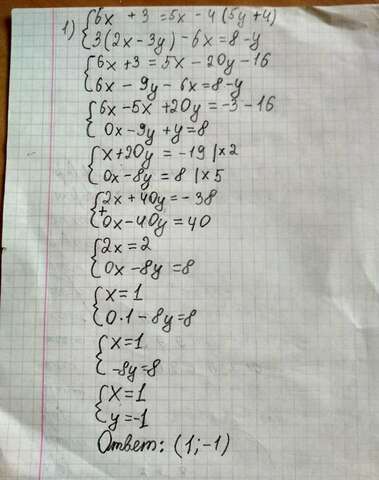 1) {6x + 3 = 5x - 4(5y + 4)
{3(2x - 3y) - 6x = 8 - y
{6x + 3 = 5x - 20y - 16
{6x - 9y - 6x = 8 - y
{6x - 5x + 20y = -3 - 16
{0x - 9y + y = 8
{x + 20y = -19 | x 2
{0x - 8y = 8 | x 5
{2x + 40y = -38
+
{0x - 40y = 40
{2x = 2
{0x - 8y = 8
{x = 1
{0·1 - 8y = 8
{x = 1
{-8y = 8
{x = 1
{y = -1
Ответ: (1; -1)